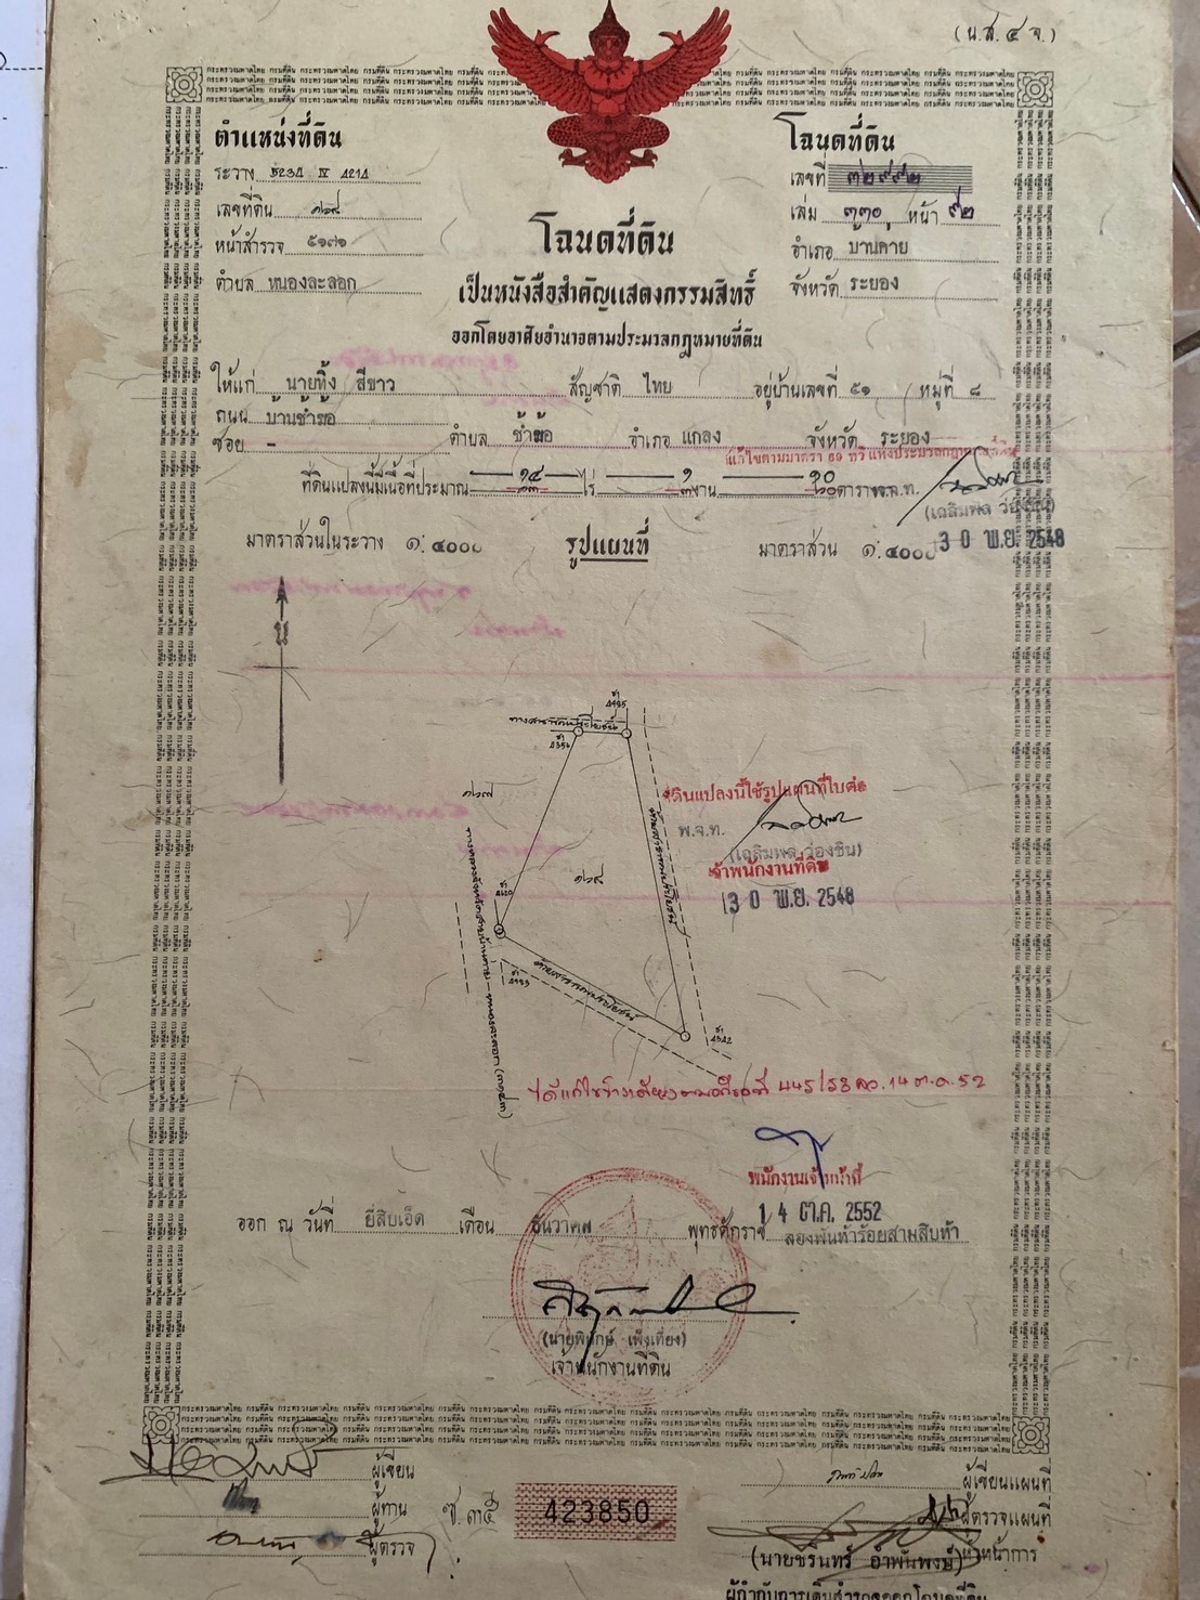 (น.ส.๔ จ.)
ตำแหน่งที่ดิน
ระวาง 5234 IV 4214
เลขที่ดิน ๑๖๘
หน้าสำรวจ ๕๑๗๑
ตำบล หนองละลอก
โฉนดที่ดิน
เลขที่ ๓๒๙๙๒
เล่ม ๓๓๐ หน้า ๙๒
อำเภอ บ้านค่าย
จังหวัด ระยอง
โฉนดที่ดิน
เป็นหนังสือสำคัญแสดงกรรมสิทธิ์
ออกโดยอาศัยอำนาจตามประมวลกฎหมายที่ดิน
ให้แก่ นายทิ้ง สีขาว สัญชาติ ไทย อยู่บ้านเลขที่ ๕๑ หมู่ที่ ๘
ถนน บ้านชำฆ้อ
ซอย - ตำบล ชำฆ้อ อำเภอ แกลง จังหวัด ระยอง
แก้ไขตามมาตรา 69 ทวิ แห่งประมวลกฎหมายที่ดิน
ที่ดินแปลงนี้มีเนื้อที่ประมาณ ๑๔ ไร่ ๑ งาน ๑๐ ตารางวา
พ.จ.ท.
(เฉลิมพล ว่องชิน)
30 พ.ย. 2548
มาตราส่วนในระวาง ๑:๔๐๐๐ รูปแผนที่ มาตราส่วน ๑:๔๐๐๐
น
ทางสาธารณประโยชน์
๑๖๗
๑๖๘
ที่ดินแปลงนี้ใช้รูปแผนที่ใบต่อ
พ.จ.ท.
(เฉลิมพล ว่องชิน)
เจ้าพนักงานที่ดิน
30 พ.ย. 2548
ได้แก้ไขข้างเคียงตาม 445/53 ลว. 14 ต.ค. 52
พนักงานเจ้าหน้าที่
14 ต.ค. 2552
ออก ณ วันที่ ยี่สิบเอ็ด เดือน ธันวาคม พุทธศักราช สองพันห้าร้อยสามสิบห้า
(นายพิทักษ์ เพ็งเที่ยง)
เจ้าพนักงานที่ดิน
ผู้เขียน
ผู้ทาน
ผู้ตรวจ
423850
ผู้เขียนแผนที่
ผู้ตรวจแผนที่
หัวหน้าการ
(นายชรินทร์ อำพันพงษ์)
ผู้กำกับการเดินสำรวจออกโฉนดที่ดิน